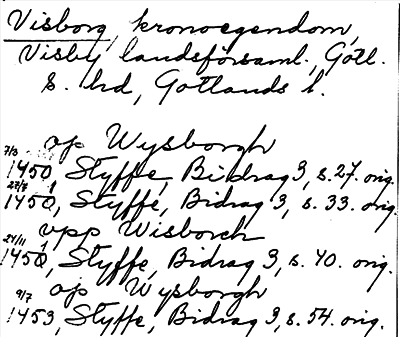 Visborg, kronoegendom,
Visby landsförsaml., Gotl.
S. hd, Gotlands l.
op Wysborgh
7/3 1450, Styffe, Bidrag 3, s. 27. orig.
27/8 1450, Styffe, Bidrag 3, s. 33. orig.
upp Wisborch
24/11 1450, Styffe, Bidrag 3, s. 40. orig.
op Wysborgh
9/7 1453, Styffe, Bidrag 3, s. 54. orig.